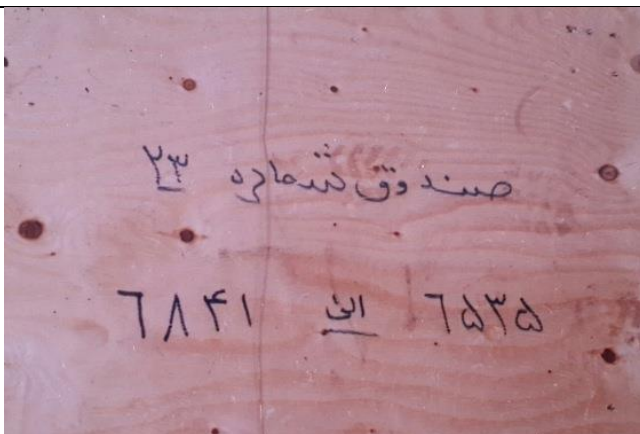 صندوق شماره ۲۳
٦۵۳۵ الی ٦۸۴۱